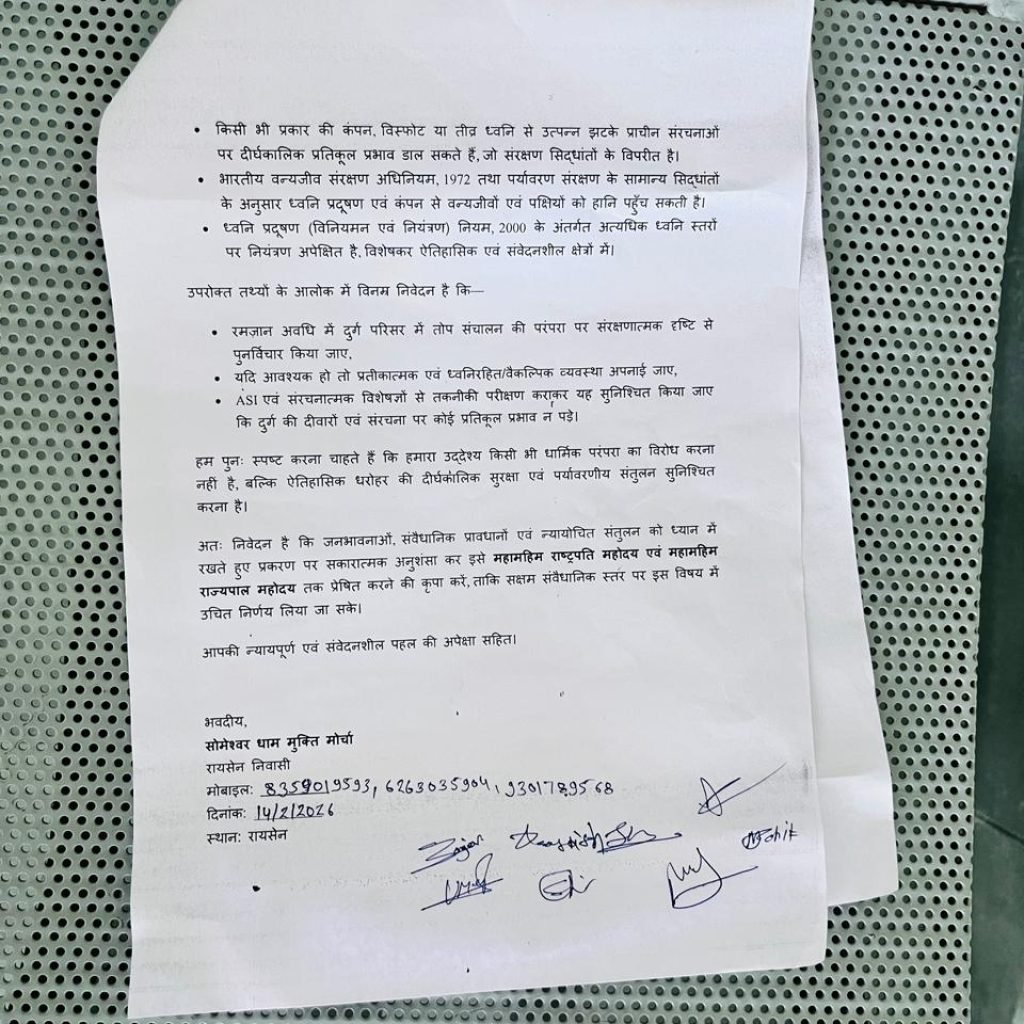 • किसी भी प्रकार की कंपन, विस्फोट या तीव्र ध्वनि से उत्पन्न झटके प्राचीन संरचनाओं
पर दीर्घकालिक प्रतिकूल प्रभाव डाल सकते हैं, जो संरक्षण सिद्धांतों के विपरीत है।
• भारतीय वन्यजीव संरक्षण अधिनियम, 1972 तथा पर्यावरण संरक्षण के सामान्य सिद्धांतों
के अनुसार ध्वनि प्रदूषण एवं कंपन से वन्यजीवों एवं पक्षियों को हानि पहुँच सकती है।
• ध्वनि प्रदूषण (विनियमन एवं नियंत्रण) नियम, 2000 के अंतर्गत अत्यधिक ध्वनि स्तरों
पर नियंत्रण अपेक्षित है, विशेषकर ऐतिहासिक एवं संवेदनशील क्षेत्रों में।
उपरोक्त तथ्यों के आलोक में विनम्र निवेदन है कि—
• रमजान अवधि में दुर्ग परिसर में तोप संचालन की परंपरा पर संरक्षणात्मक दृष्टि से
पुनर्विचार किया जाए,
• यदि आवश्यक हो तो प्रतीकात्मक एवं ध्वनिरहित/वैकल्पिक व्यवस्था अपनाई जाए,
• ASI एवं संरचनात्मक विशेषज्ञों से तकनीकी परीक्षण कराकर यह सुनिश्चित किया जाए
कि दुर्ग की दीवारों एवं संरचना पर कोई प्रतिकूल प्रभाव न पड़े।
हम पुनः स्पष्ट करना चाहते हैं कि हमारा उद्देश्य किसी भी धार्मिक परंपरा का विरोध करना
नहीं है, बल्कि ऐतिहासिक धरोहर की दीर्घकालिक सुरक्षा एवं पर्यावरणीय संतुलन सुनिश्चित
करना है।
अतः निवेदन है कि जनभावनाओं, संवैधानिक प्रावधानों एवं न्यायोचित संतुलन को ध्यान में
रखते हुए प्रकरण पर सकारात्मक अनुशंसा कर इसे महामहिम राष्ट्रपति महोदय एवं महामहिम
राज्यपाल महोदय तक प्रेषित करने की कृपा करें, ताकि सक्षम संवैधानिक स्तर पर इस विषय में
उचित निर्णय लिया जा सके।
आपकी न्यायपूर्ण एवं संवेदनशील पहल की अपेक्षा सहित।
भवदीय,
सोमेश्वर धाम मुक्ति मोर्चा
रायसेन निवासी
मोबाइल: 8359019593, 6263035904, 9301789568
दिनांक: 14/2/2026
स्थान: रायसेन